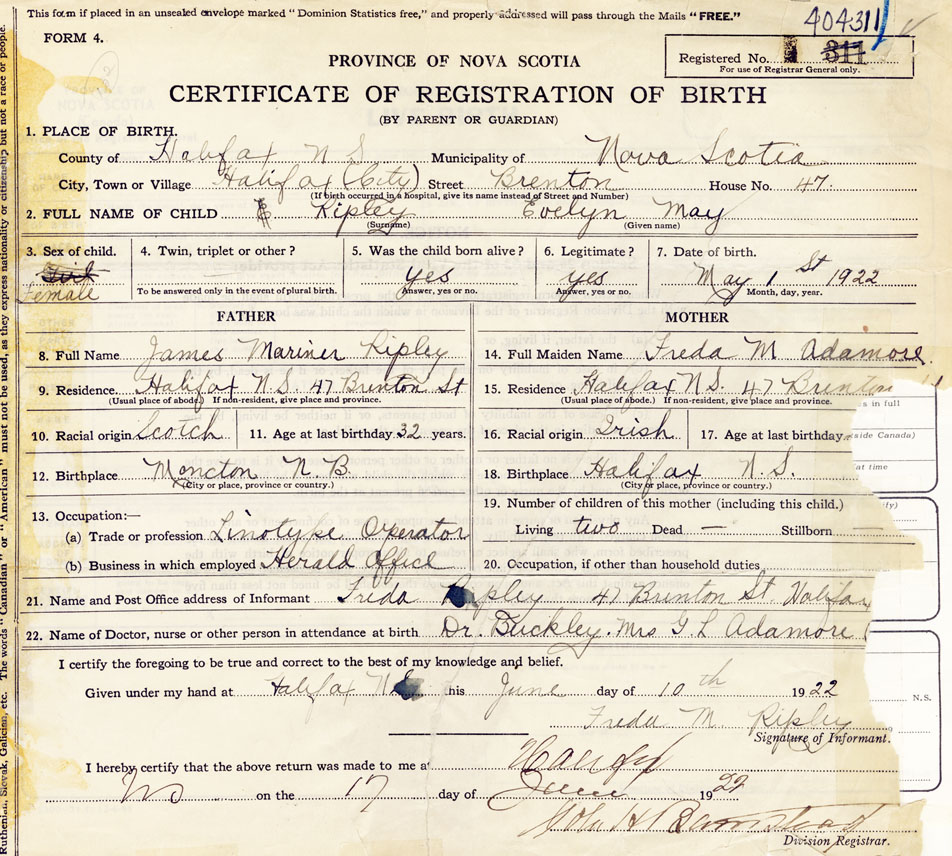 This form if placed in an unsealed envelope marked "Dominion Statistics free," and properly addressed will pass through the Mails "FREE."
404311
FORM 4.
Registered No. 311
For use of Registrar General only.
PROVINCE OF NOVA SCOTIA
CERTIFICATE OF REGISTRATION OF BIRTH
(BY PARENT OR GUARDIAN)
1. PLACE OF BIRTH.
County of Halifax N S Municipality of Nova Scotia
City, Town or Village Halifax (City) Street Brenton House No. 47.
(If birth occurred in a hospital, give its name instead of Street and Number)
2. FULL NAME OF CHILD Ripley Evelyn May
(Surname) (Given name)
3. Sex of child. 4. Twin, triplet or other? 5. Was the child born alive? 6. Legitimate? 7. Date of birth.
Girl Female yes yes May 1st 1922
To be answered only in the event of plural birth. Answer, yes or no. Answer, yes or no. Month, day, year.
FATHER MOTHER
8. Full Name James Mariner Ripley 14. Full Maiden Name Freda M Adamore.
9. Residence Halifax N.S. 47 Brenton St 15. Residence Halifax N.S. 47 Brenton
(Usual place of abode) If non-resident, give place and province. (Usual place of abode.) If non-resident, give place and province.
in full
10. Racial origin Scotch 11. Age at last birthday 32 years. 16. Racial origin Irish 17. Age at last birthday
side Canada)
12. Birthplace Moncton N.B. 18. Birthplace Halifax N.S.
at time
(City or place, province or country.) (City or place, province or country.)
13. Occupation:— 19. Number of children of this mother (including this child.)
(a) Trade or profession Linotype Operator Living two Dead — Stillborn
(b) Business in which employed Herald Office 20. Occupation, if other than household duties
21. Name and Post Office address of Informant Freda Ripley 47 Brenton St. Halifax
22. Name of Doctor, nurse or other person in attendance at birth Dr. Buckley. Mrs G L Adamore
I certify the foregoing to be true and correct to the best of my knowledge and belief.
Given under my hand at Halifax N.S. this June day of 10th 1922
N.S.
Freda M Ripley
Signature of Informant.
I hereby certify that the above return was made to me at Halifax
NS on the 17 day of June 1922
John H Barnstead
Division Registrar.
Ruthenian, Slovak, Galician, etc. The words "Canadian" or "American" must not be used, as they express nationality or citizenship but not a race or people.